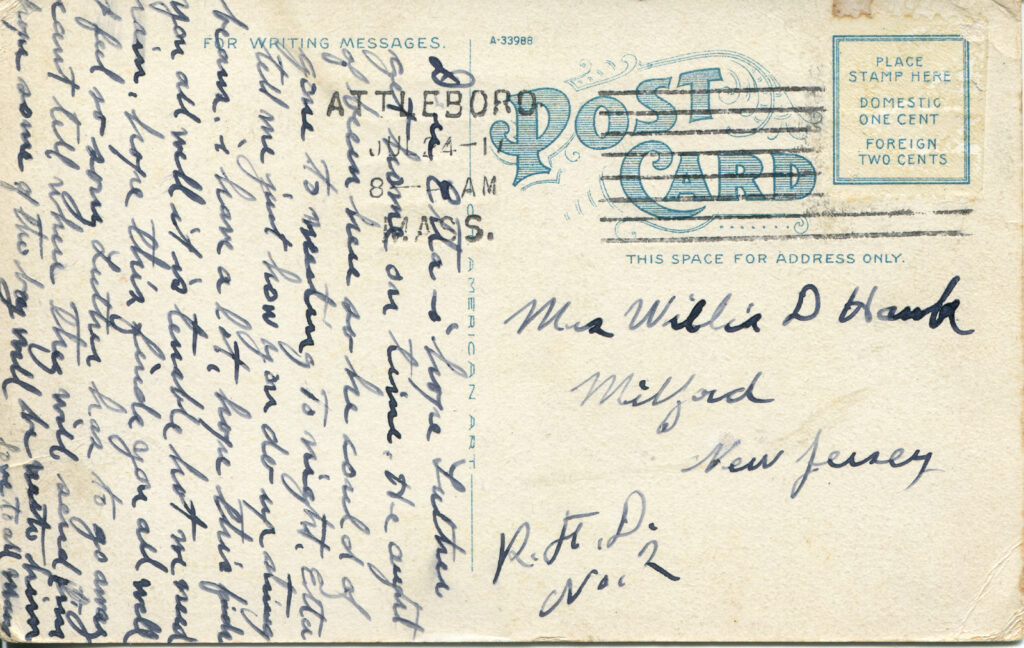 FOR WRITING MESSAGES.
A-33988
POST
CARD
PLACE
STAMP HERE
DOMESTIC
ONE CENT
FOREIGN
TWO CENTS
ATTLEBORO
JUL 24-17
8- AM
MASS.
THIS SPACE FOR ADDRESS ONLY.
AMERICAN ART
Mrs Willis D Hawk
Milford
New Jersey
R. F. D.
No. 2
Dear Etta i hope Luther
got home on time. He ought
of been here so he could of
gone to meeting to night. Etta
tell me just how you do up string
beans. i have a lot, hope this find
you all well it is terrible hot we need
rain, hope this finds you all well
i feel so sorry Luther has to go away
cant tell where they will send him
hope some of the boys will be with him
love to all